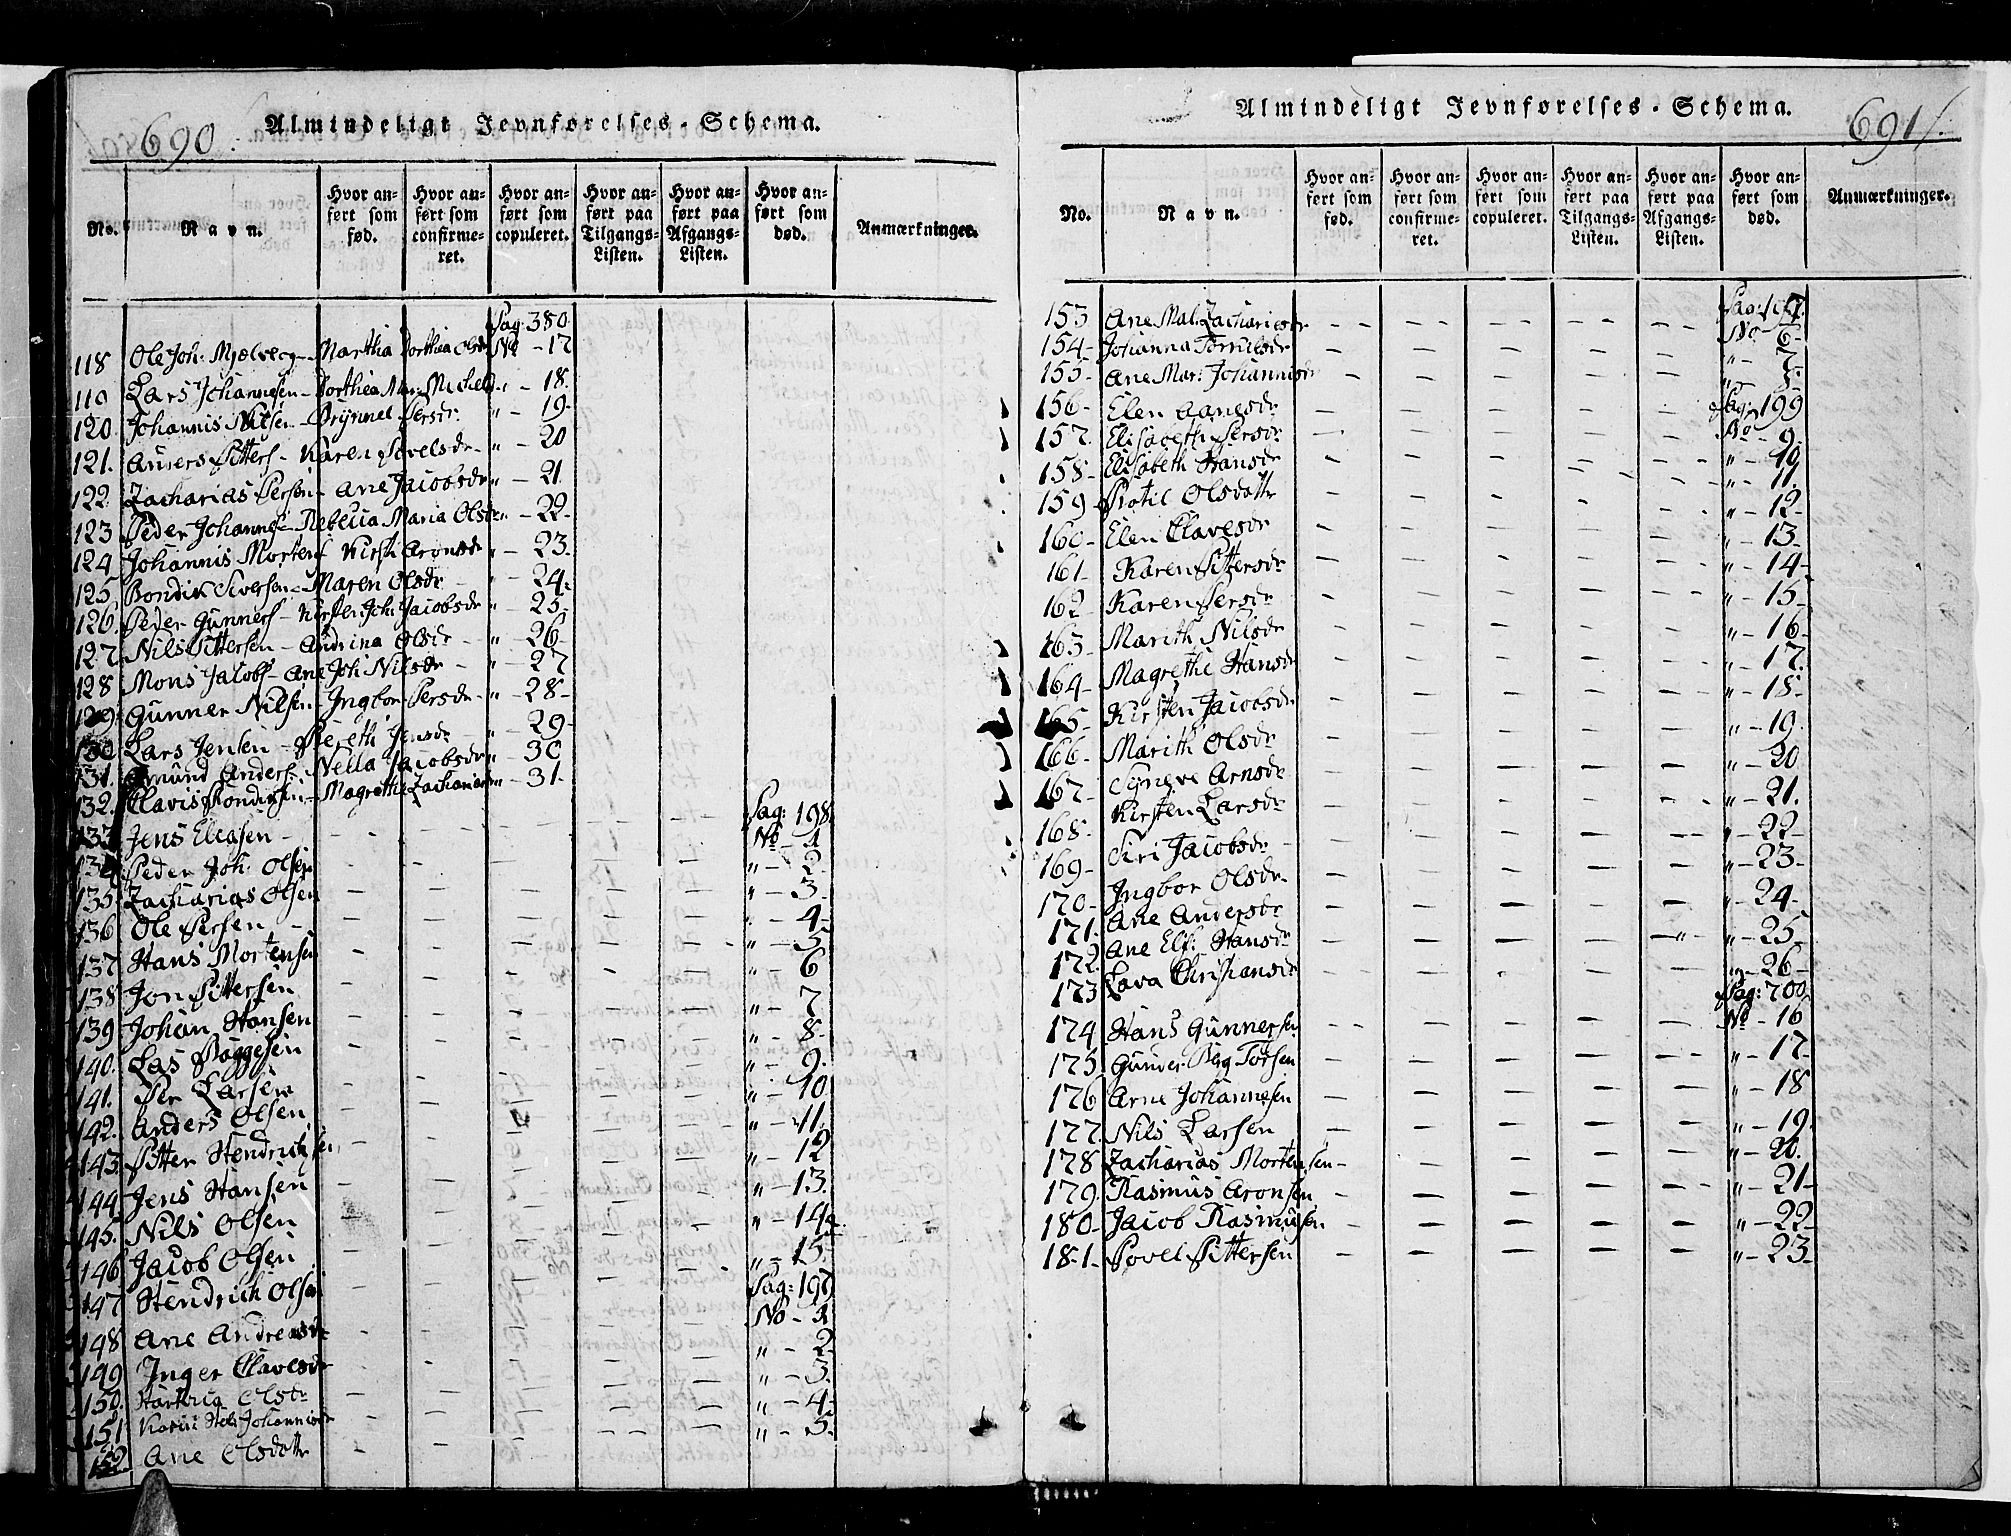 690.
Almindeligt Jevnførelses-Schema.
No.
Navn.
Hvor anført som fød.
Hvor anført som confirmeret.
Hvor anført som copuleret.
Hvor anført paa Tilgangs-Listen.
Hvor anført paa Afgangs-Listen.
Hvor anført som død.
Anmærkninger.
Pag: 380
118 Ole Joh: Mjelveg - Martha Dorthea Olsdr No - 17
119 Lars Johannesen - Dorthea Mar: Michelsd „ - 18.
120 Johannis Nilsen - Brynnel Persdr. „ - 19
121. Anders Pitters - Karen Povelsdr - „ - 20
122. Zacharias Persen - Ane Jacobsdr „ - 21.
123 Peder Johannes - Rebecca Maria Olsdr „ - 22-
124 Johannis Mortens Kirst: Aronsdr „ - 23.
125 Bondik Siversen - Maren Olsdr - „ - 24.
126. Peder Gunners - Kirsten Joh: Jacobsdr „ - 25-
127. Nils Pittersen - Andrina Olsdr - „ - 26-
128 Mons Jacobs - Ane Joh Nilsdr - „ - 27
129. Gunner Nilsen - Ingbor Persdr - „ - 28-
130 Lars Jensen - Bereth Jensdr - „ - 29-
131. Amund Anders: Nella Jacobsdr „ - 30
132. Clavis Bondiksen - Magrethe Zachariasdr „ - 31.
Pag: 198.
133 Jens Elegsen - No - 1
134 Peder Joh: Olsen „ - 2.
135 Zacharias Olsen „ - 3-
136 Ole Persen - „ - 4-
137 Hans Mortensen „ - 5
138 Jon Pittersen „ - 6
139 Johan Hansen „ - 7
140. Las Baggesen „ - 8-
141. Per Larsen „ - 9.
142. Anders Olsen „ - 10
143 Pitter Hendrichsen „ - 11.
144. Jens Hansen „ - 12
145. Nils Olsen „ - 13.
146 Jacob Olsen „ - 14
147 Hendrich Olsen „ - 15
Pag: 199
148 Ane Andreasdr No - 1
149 Inger Clavesdr „ - 2
150. Hartvig Olsdr „ - 3.
151 Johannisdr „ - 4-
152 Ane Olsdottr „ - 5.
691.
Almindeligt Jevnførelses-Schema.
No.
Navn.
Hvor anført som fød.
Hvor anført som confirmeret.
Hvor anført som copuleret.
Hvor anført paa Tilgangs-Listen.
Hvor anført paa Afgangs-Listen.
Hvor anført som død.
Anmærkninger.
153 Ane Mal: Zachariesdr No 6-
154- Johanna „ 7
155- Ane Mar: Johannisdr „
Pag: 199
156- Elen Aanesdr No - 9.
157. Elisabeth Persdr „ - 10
158- Elisabeth Hansdr „ - 11.
159- Botil Olsdottr „ - 12-
160- Elen Clavesdr „ - 13-
161- Karen Pittersdr „ - 14-
162- Karen Persdr „ - 15-
163- Marith Nilsdr „ - 16-
164- Magrethe Hansdr „ - 17.
165- Kirsten Jacobsdr „ - 18-
166- Marith Olsdr „ - 19.
167- Synneve Arnsdr „ - 20
168- Kirsten Larsdr „ - 21.
169- Siri Jacobsdr „ - 22-
170- Ingbor Olsdr „ - 23-
171. Ane Andersdr „ - 24-
172. Ane Els: Hansdr „ - 25
173 Lava Christiansdr „ - 26-
Pag: 200
174. Hans Gunnersen No - 16
175 Gunder Berg Torsen „ - 17-
176 Arne Johannesen „ - 18
177. Nils Larsen „ - 19.
178 Zacharias Mortensen - „ - 20.
179. Rasmus Aronsen „ - 21-
180- Jacob Rasmussen „ - 22-
181- Povel Pittersen „ - 23-